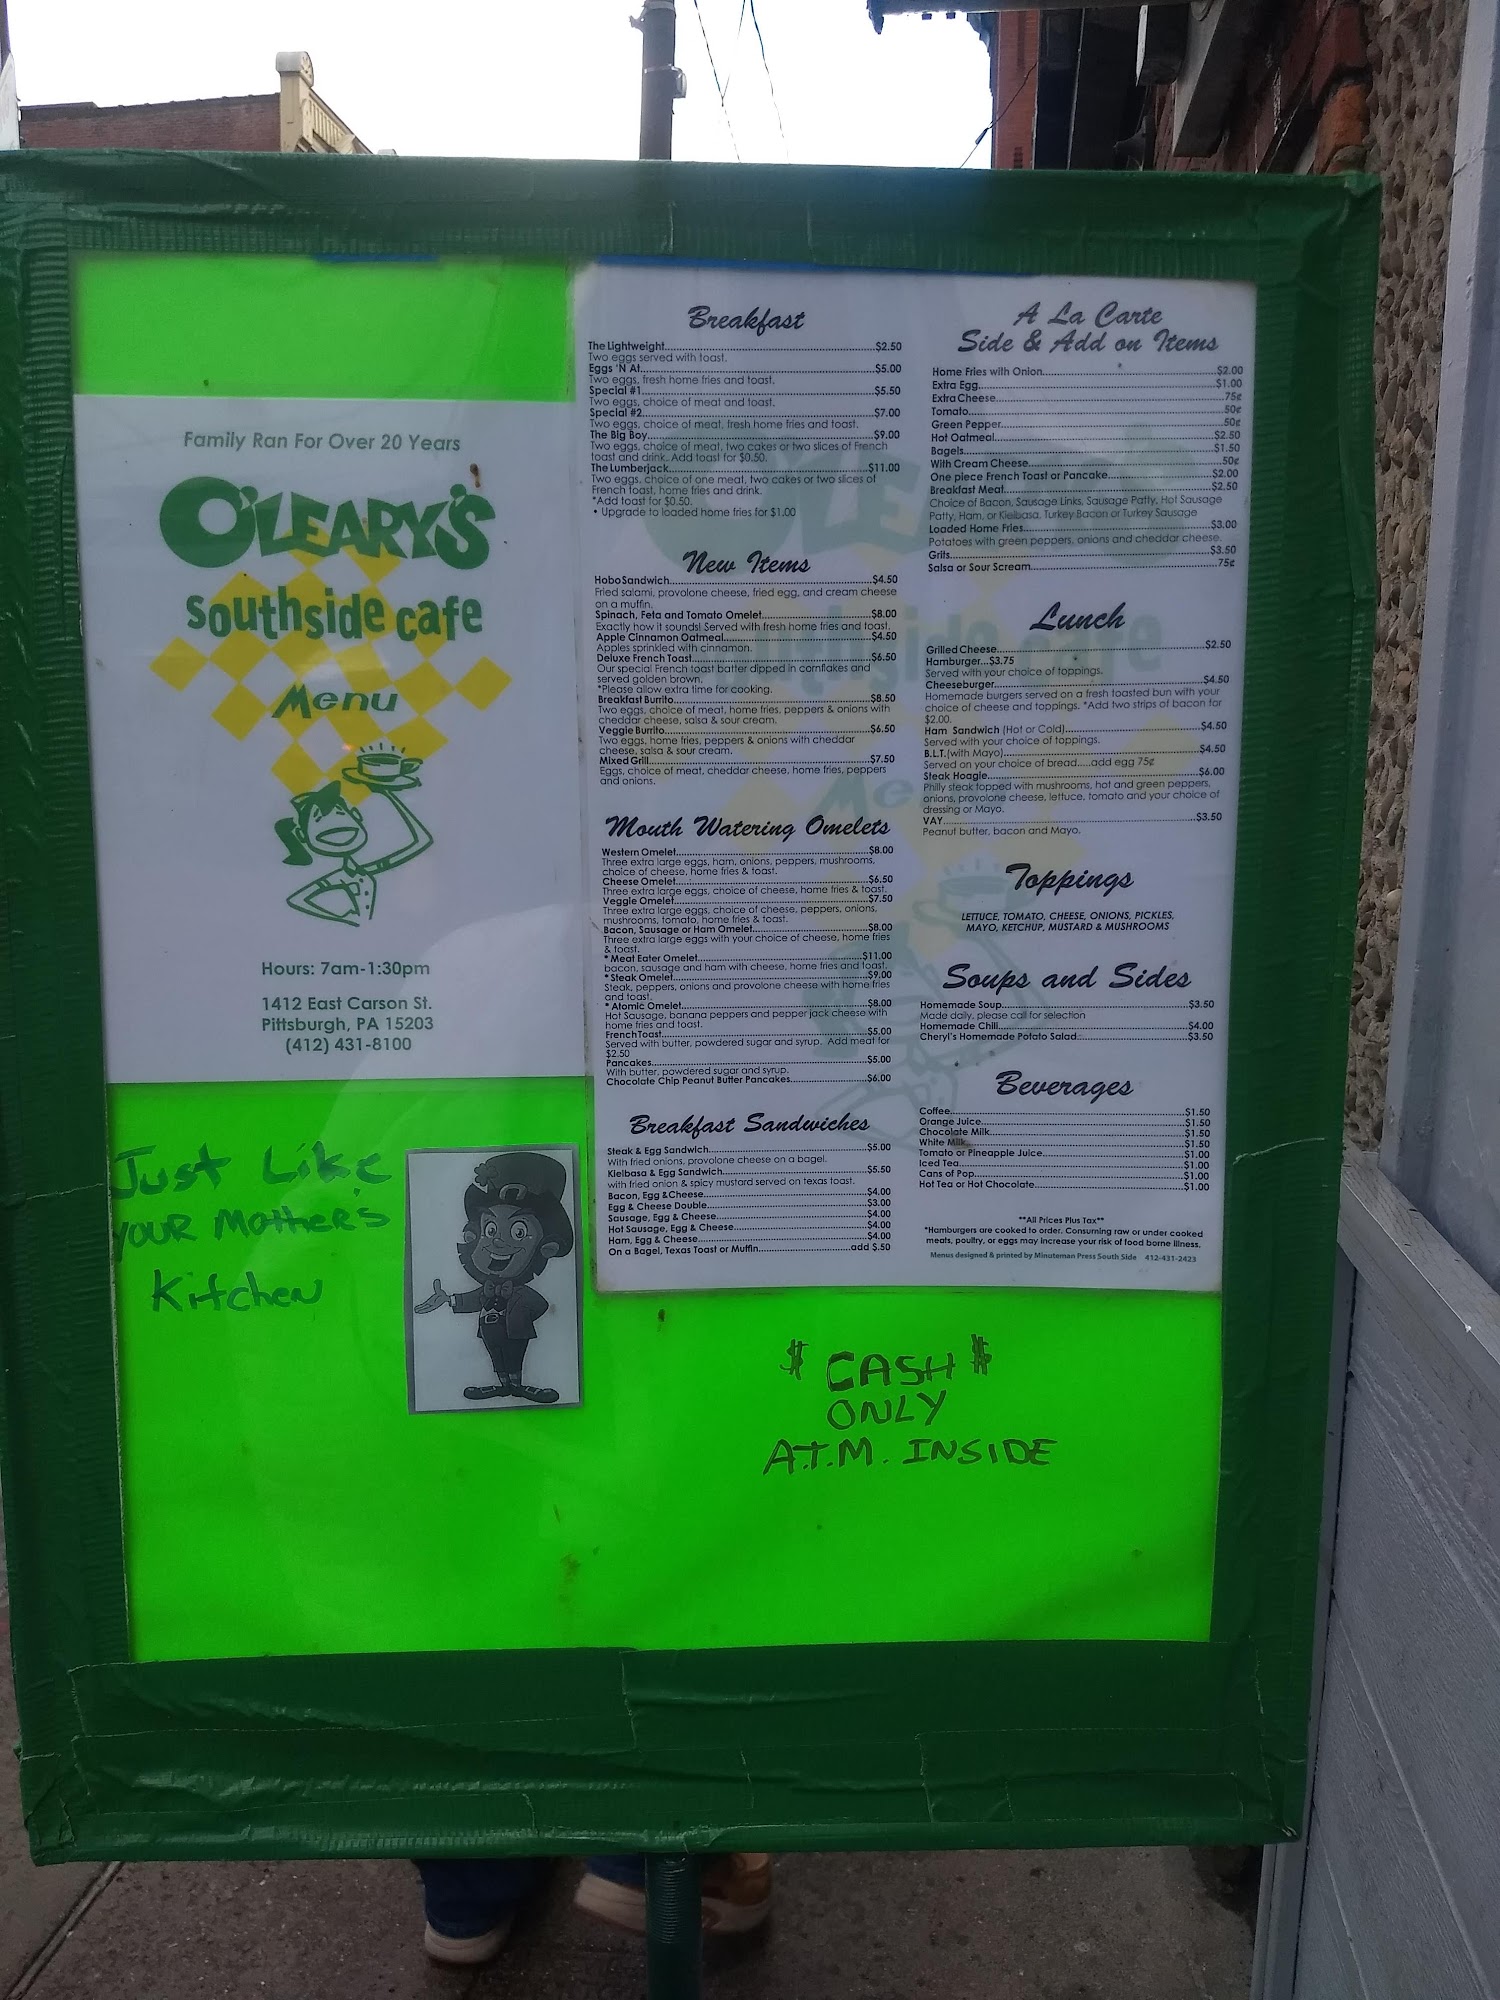 Family Ran For Over 20 Years
O'LEARY'S
southside cafe
Menu
Hours: 7am-1:30pm
1412 East Carson St.
Pittsburgh, PA 15203
(412) 431-8100
Just Like
YOUR MOTHER'S
Kitchen
Breakfast
The Lightweight....$2.50
Two eggs served with toast.
Eggs 'N At....$5.00
Two eggs, fresh home fries and toast.
Special #1....$5.50
Two eggs, choice of meat and toast.
Special #2....$7.00
Two eggs, choice of meat, fresh home fries and toast.
The Big Boy....$9.00
Two eggs, choice of meat, two cakes or two slices of French
toast and drink. Add toast for $0.50.
The Lumberjack....$11.00
Two eggs, choice of one meat, two cakes or two slices of
French toast, home fries and drink.
*Add toast for $0.50.
• Upgrade to loaded home fries for $1.00
New Items
Hobo Sandwich....$4.50
Fried salami, provolone cheese, fried egg, and cream cheese
on a muffin.
Spinach, Feta and Tomato Omelet....$8.00
Exactly how it sounds! Served with fresh home fries and toast.
Apple Cinnamon Oatmeal....$4.50
Apples sprinkled with cinnamon.
Deluxe French Toast....$6.50
Our special French toast batter dipped in cornflakes and
served golden brown.
*Please allow extra time for cooking.
Breakfast Burrito....$8.50
Two eggs, choice of meat, home fries, peppers & onions with
cheddar cheese, salsa & sour cream.
Veggie Burrito....$6.50
Two eggs, home fries, peppers & onions with cheddar
cheese, salsa & sour cream.
Mixed Grill....$7.50
Eggs, choice of meat, cheddar cheese, home fries, peppers
and onions.
Mouth Watering Omelets
Western Omelet....$8.00
Three extra large eggs, ham, onions, peppers, mushrooms,
choice of cheese, home fries & toast.
Cheese Omelet....$6.50
Three extra large eggs, choice of cheese, home fries & toast.
Veggie Omelet....$7.50
Three extra large eggs, choice of cheese, peppers, onions,
mushrooms, tomato, home fries & toast.
Bacon, Sausage or Ham Omelet....$8.00
Three extra large eggs with your choice of cheese, home fries
& toast.
* Meat Eater Omelet....$11.00
bacon, sausage and ham with cheese, home fries and toast.
* Steak Omelet....$9.00
Steak, peppers, onions and provolone cheese with home fries
and toast.
* Atomic Omelet....$8.00
Hot Sausage, banana peppers and pepper jack cheese with
home fries and toast.
French Toast....$5.00
Served with butter, powdered sugar and syrup. Add meat for
$2.50
Pancakes....$5.00
With butter, powdered sugar and syrup.
Chocolate Chip Peanut Butter Pancakes....$6.00
Breakfast Sandwiches
Steak & Egg Sandwich....$5.00
With fried onions, provolone cheese on a bagel.
Kielbasa & Egg Sandwich....$5.50
with fried onion & spicy mustard served on texas toast.
Bacon, Egg & Cheese....$4.00
Egg & Cheese Double....$3.00
Sausage, Egg & Cheese....$4.00
Hot Sausage, Egg & Cheese....$4.00
Ham, Egg & Cheese....$4.00
On a Bagel, Texas Toast or Muffin....add $.50
A La Carte
Side & Add on Items
Home Fries with Onion....$2.00
Extra Egg....$1.00
Extra Cheese....75¢
Tomato....50¢
Green Pepper....50¢
Hot Oatmeal....$2.50
Bagels....$1.50
With Cream Cheese....50¢
One piece French Toast or Pancake....$2.00
Breakfast Meat....$2.50
Choice of Bacon, Sausage Links, Sausage Patty, Hot Sausage
Patty, Ham, or Kielbasa, Turkey Bacon or Turkey Sausage
Loaded Home Fries....$3.00
Potatoes with green peppers, onions and cheddar cheese.
Grits....$3.50
Salsa or Sour Scream....75¢
Lunch
Grilled Cheese....$2.50
Hamburger...$3.75
Served with your choice of toppings.
Cheeseburger....$4.50
Homemade burgers served on a fresh toasted bun with your
choice of cheese and toppings. *Add two strips of bacon for
$2.00.
Ham Sandwich (Hot or Cold)....$4.50
Served with your choice of toppings.
B.L.T.(with Mayo)....$4.50
Served on your choice of bread.....add egg 75¢
Steak Hoagie....$6.00
Philly steak topped with mushrooms, hot and green peppers,
onions, provolone cheese, lettuce, tomato and your choice of
dressing or Mayo.
VAY....$3.50
Peanut butter, bacon and Mayo.
Toppings
LETTUCE, TOMATO, CHEESE, ONIONS, PICKLES,
MAYO, KETCHUP, MUSTARD & MUSHROOMS
Soups and Sides
Homemade Soup....$3.50
Made daily, please call for selection
Homemade Chili....$4.00
Cheryl's Homemade Potato Salad....$3.50
Beverages
Coffee....$1.50
Orange Juice....$1.50
Chocolate Milk....$1.50
White Milk....$1.50
Tomato or Pineapple Juice....$1.00
Iced Tea....$1.00
Cans of Pop....$1.00
Hot Tea or Hot Chocolate....$1.00
**All Prices Plus Tax**
*Hamburgers are cooked to order. Consuming raw or under cooked
meats, poultry, or eggs may increase your risk of food borne illness.
Menus designed & printed by Minuteman Press South Side 412-431-2423
$ CASH $
ONLY
A.T.M. INSIDE